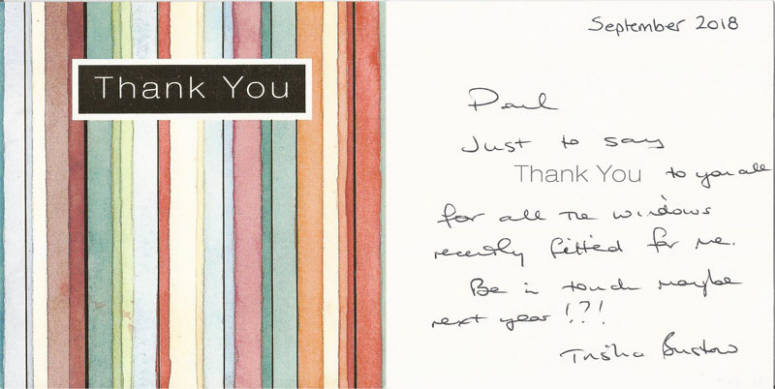 Thank You
September 2018
Paul
Just to say
Thank You to you all
for all the windows
recently fitted for me.
Be in touch maybe
next year !?!
Trisha